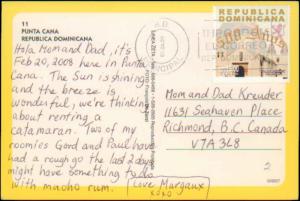 11
PUNTA CANA
REPUBLICA DOMINICANA
Hola Mom and Dad, it's
Feb 20, 2009 here in Punta
Cana. The Sun is shining
and the breeze is
wonderful, we're thinking
about renting a
catamaran. Two of my
roomies Good and Paul have
had a rough go the last 2 days
might have something to do
with macho rum.
Love Margaux
xoxo
REPUBLICA
DOMINICANA
Mom and Dad Kreuder
11631 Seahaven Place
Richmond, B.C. Canada
V7A 3L8
2